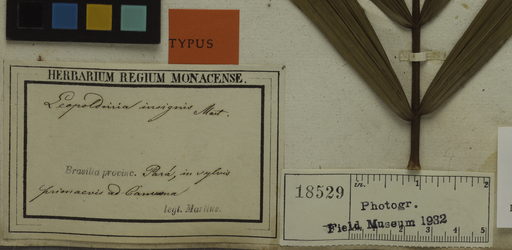 TYPUS
HERBARIUM REGIUM MONACENSE.
Leopoldinia insignis Mart.
Brasilia provinc. Pará, in sylvis
primaevis ad
legt. Martius.
18529
Photogr.
Field Museum 1932